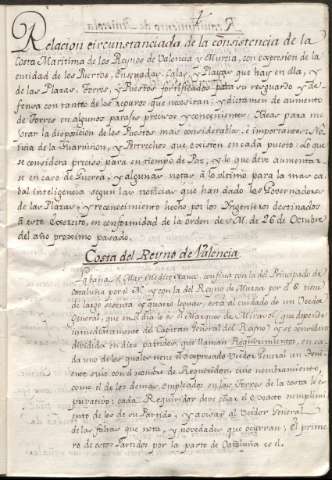 Relacion circunstanciada de la consistencia de la
Costa Maritima de los Reynos de Valencia y Murcia, con expresion de la
entidad de los Puertos, Ensenadas, Calas, y Playas que hay en ella, y
de las Plazas, Torres, y Puestos fortificados para su resguardo y de-
fensa con tanteo de los reparos que necesitan, y dictamen de aumento
de Torres en algunos parajes precisos y convenientes. Ideas para me-
jorar la disposicion de los Puertos mas considerables, è importantes: No-
ticia de la Guarnicion, y Pertrechos que existen en cada puesto: Lo que
se considera preciso para en tiempo de Paz, y lo que debe aumentar-
se en caso de Guerra, y algunas notas à lo ultimo para la mas ca-
bal inteligencia segun las noticias que han dado los Governadores
de las Plazas, y reconocimiento hecho por los Ingenieros destinados
à este Exercito, en conformidad de la orden de S.M. de 26 de Octubre
del año proximo pasado.
Costa del Reyno de Valencia
baña el Mar Mediterraneo, confina con la del Principado de
Cataluña por el N. y con la del Reyno de Murcia por el S. tiene
de largo sesenta y quatro leguas, està al cuidado de un Veedor
General, que en el dia lo es el Marques de Mirasol, que depende
inmediatamente del Capitan General del Reyno, y se considera
dividida en diez partidos, que llaman Requirimientos, en ca-
da uno de los quales tiene el expresado Veedor General un Tenien-
te suyo con el nombre de Requiridor, cuio nombramiento,
como el de los demas empleados en las Torres de la costa le es
privativo; cada Requiridor debe celar el exacto cumplimi-
ento de los de su Partido, y avisar al Veedor General
de las faltas que nota, y novedades que ocurran; El pri-
mero de estos Partidos por la parte de Cataluña es el